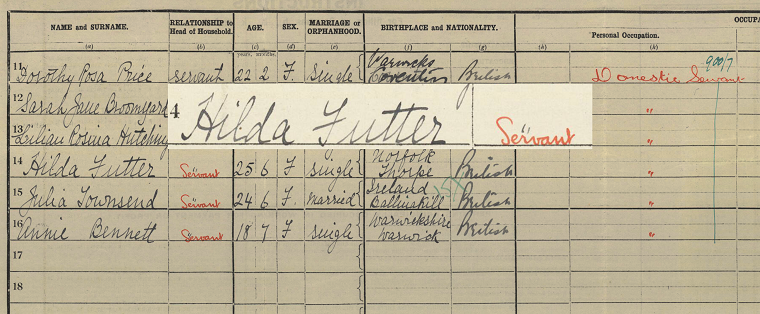 OCCUPA
NAME and SURNAME. RELATIONSHIP to Head of Household. AGE. SEX. MARRIAGE or ORPHANHOOD. BIRTHPLACE and NATIONALITY. Personal Occupation.
(a) (b) (c) (d) (e) (f) (g) (h) (k)
years. months.
900/7
11 Dorothy Rosa Price servant 22 2 F. Single Warwicks Coventry British Domestic Servant
12 Sarah Jane "
4 Hilda Futter Servant
13 Lilian Rosina Hutching "
14 Hilda Futter Servant 25 6 F. Single Norfolk Thorpe British "
15 Julia Townsend Servant 24 6 F. Married Ireland Ballinakill British "
16 Annie Bennett Servant 18 7 F Single Warwickshire Warwick British "
17
18